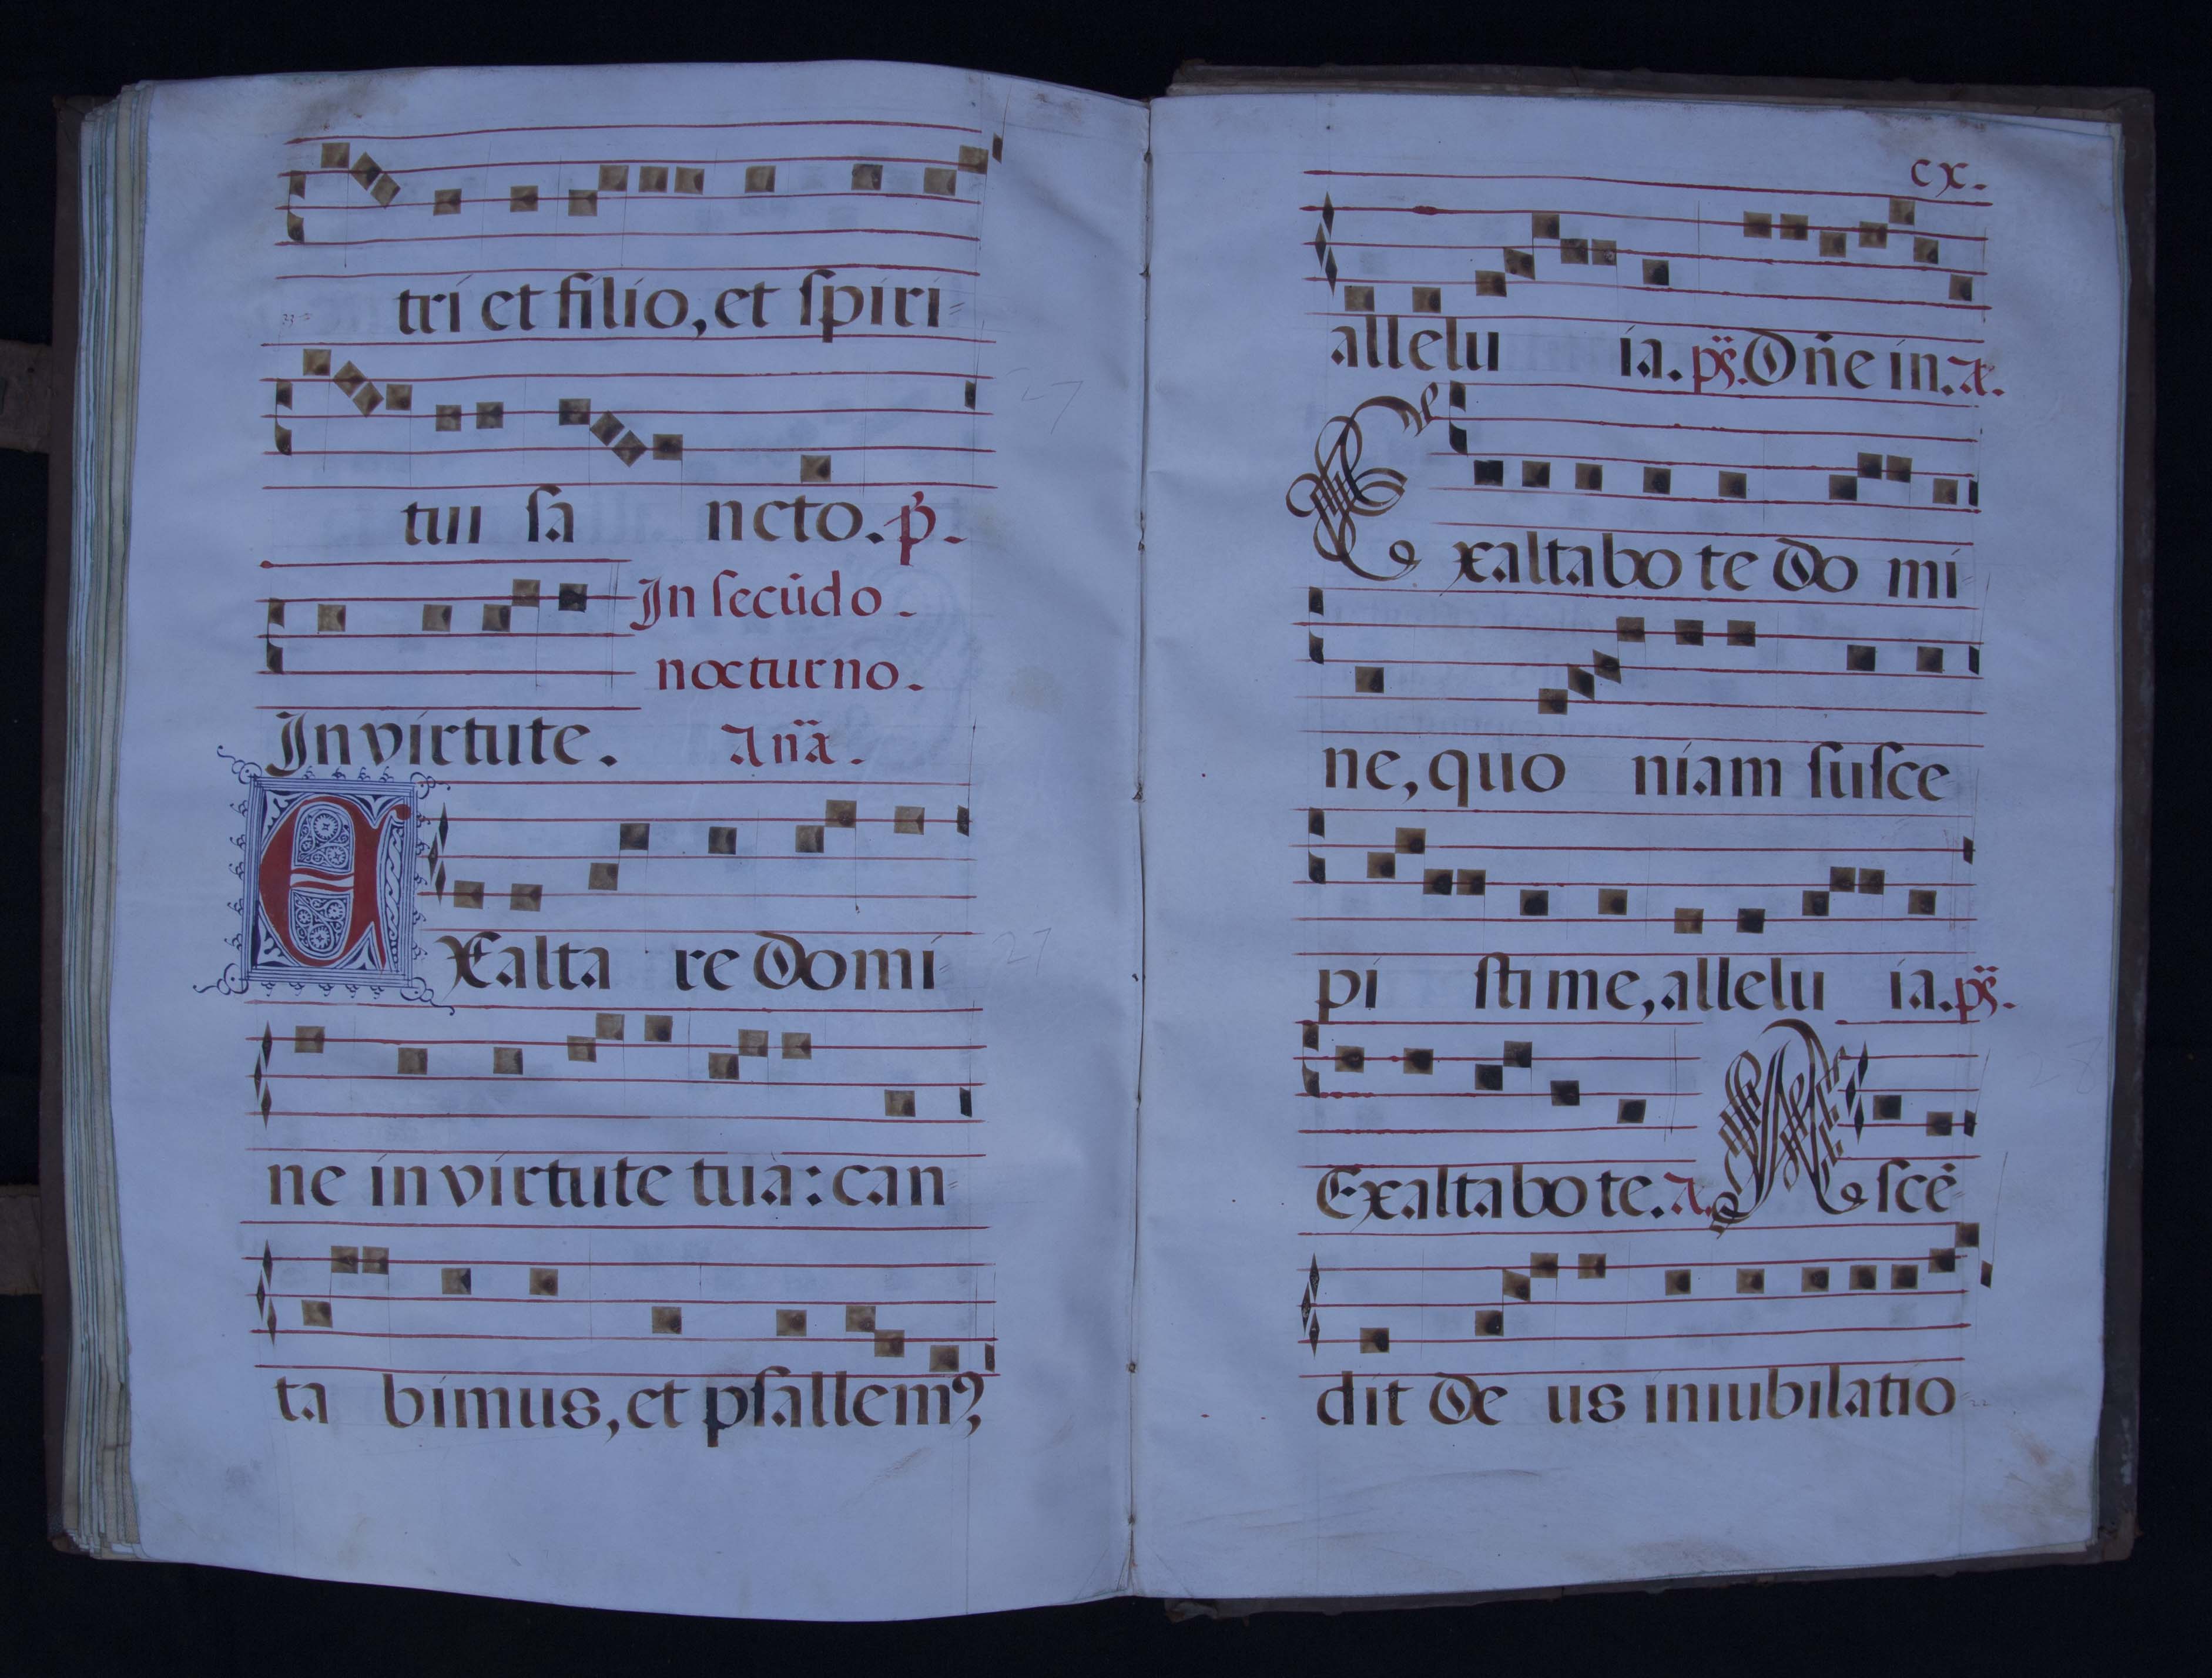 tri et filio, et ſpiri=
tui ſa ncto. p̃.
In ſecūdo.
nocturno.
In virtute. Añã.
EXalta re domi=
ne in virtute tua: can=
ta bimus, et pſallemꝰ,
cx.
allelu ia. ps̃. Dñe in. A.
Exaltabo te domi=
ne, quo niam ſuſce
pi ſti me, allelu ia. ps̃.
Exaltabo te. A. Aſcē=
dit de us in iubilatio=